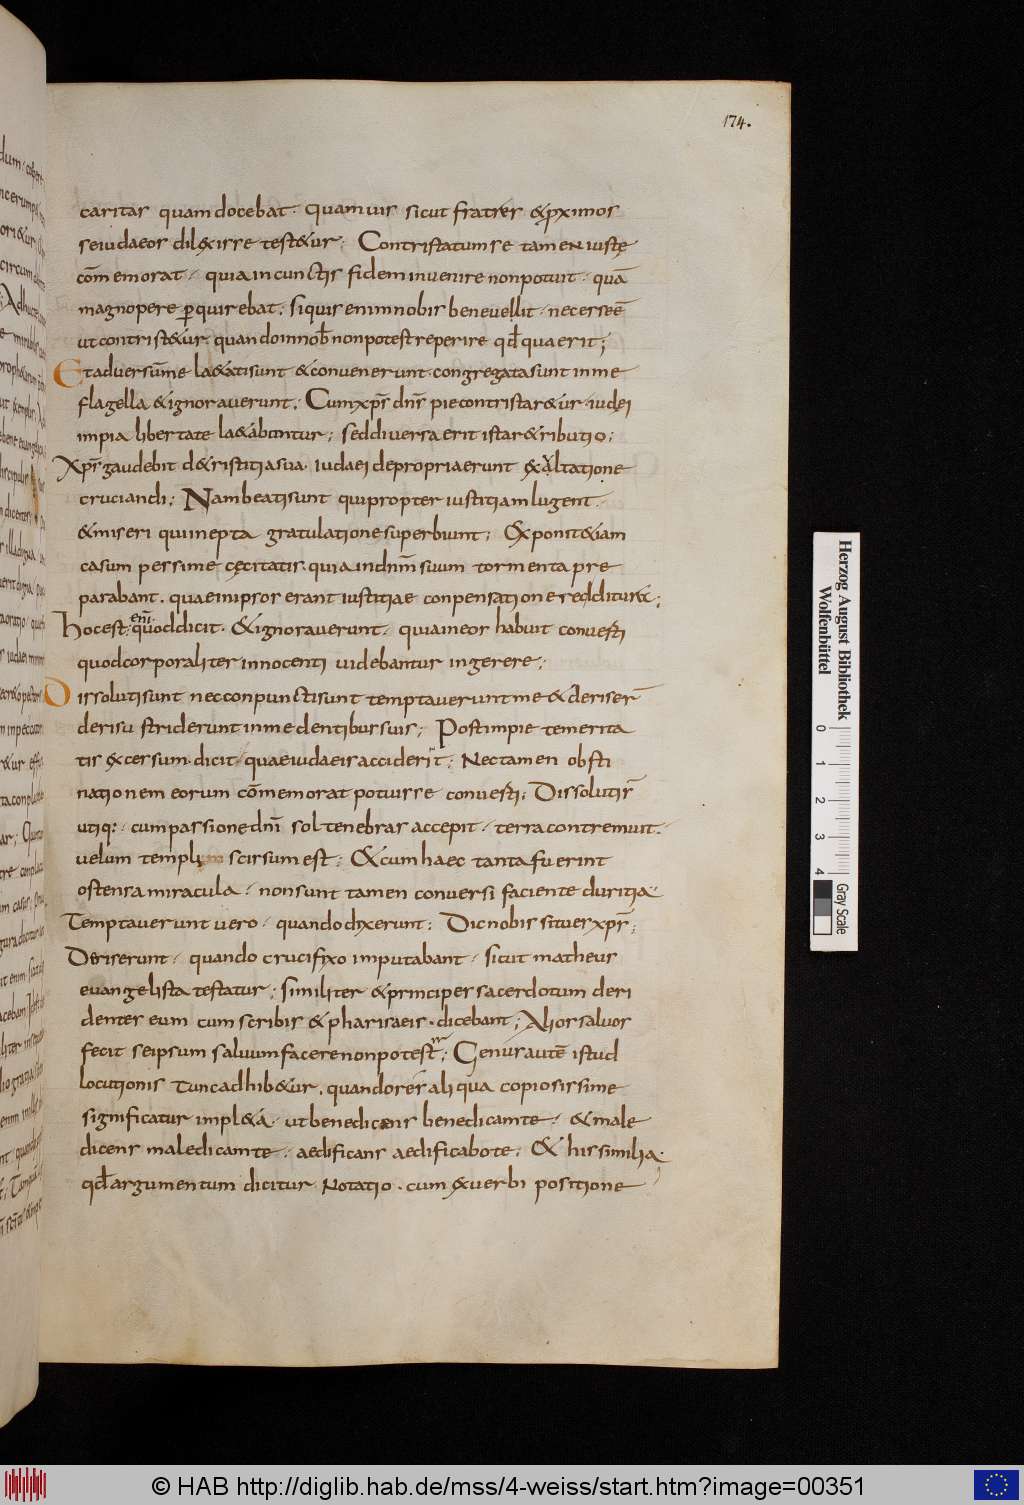 174.
caritas quam docebat. quamuis sicut fratres &pximos
seiudaeos dilexisse test&ur; Contristatum se tamen iustę
cōmemorat, quia in cunctis fidem inuenire non potuit, quā
magnopere ꝑquirebat. siquis enim nobis beneuellit, necesseē
ut contrist&ur, quando innob̄ nonpotest reperire qđ quaerit;
Et aduersūme la&ati sunt &conuenerunt. congregata sunt inme
flagella &ignorauerunt; Cumxp̄s dn̄s pie contristar&ur. iudei
impia libertate la&abantur; sed diuersa erit ista r&ributio;
Xp̄s gaudebit de tristitia sua, iudaei depropria erunt exaltatione
cruciandi; Nam beati sunt qui propter iustitiam lugent.
&miseri qui inepta gratulatione superbiunt; Exponit &iam
casum pessime cęcitatis. quia indn̄m suum tormenta pre
parabant. quae inipsos erant iustitiae conpensatione reddituræ;
enī
Hoc est. quod dicit. &ignorauerunt, quia ineos habuit conuesti
quod corporaliter innocenti uidebantur ingerere;
Dissoluti sunt nec conpuncti sunt temptauerunt me &deriser̄
derisu striderunt inme dentibus suis; Post impie temerita
tis excessum. dicit, quae iudaeis acciderit; Nec tamen obsti
nationem eorum cōmemorat potuisse conuesti; Dissoluti s̄
utiq:, cum passione dn̄i sol tenebras accepit, terra contremuit.
uelum templum scissum est; &cum haec tanta fuerint
ostensa miracula, non sunt tamen conuersi faciente duritia
Temptauerunt uero, quando dixerunt; Dic nobis situ es xp̄s;
Deriserunt, quando crucifixo imputabant, sicut matheus
euangelista testatur; similiter &principes sacerdotum deri
dentes eum cum scribis &pharisaeis. dicebant; Alios saluos
fecit seipsum saluum facere non potest; Genus autē istud
locutionis tunc adhib&ur, quando res aliqua copiosissime
significatur impl&a. ut benedicens benedicam te, &male
dicens maledicam te, aedificans aedificabo te; & his similia.
qđ argumentum dicitur Notatio. cum ex uerbi positione
Herzog August Bibliothek
Wolfenbüttel
0 1 2 3 4
Gray Scale
© HAB http://diglib.hab.de/mss/4-weiss/start.htm?image=00351